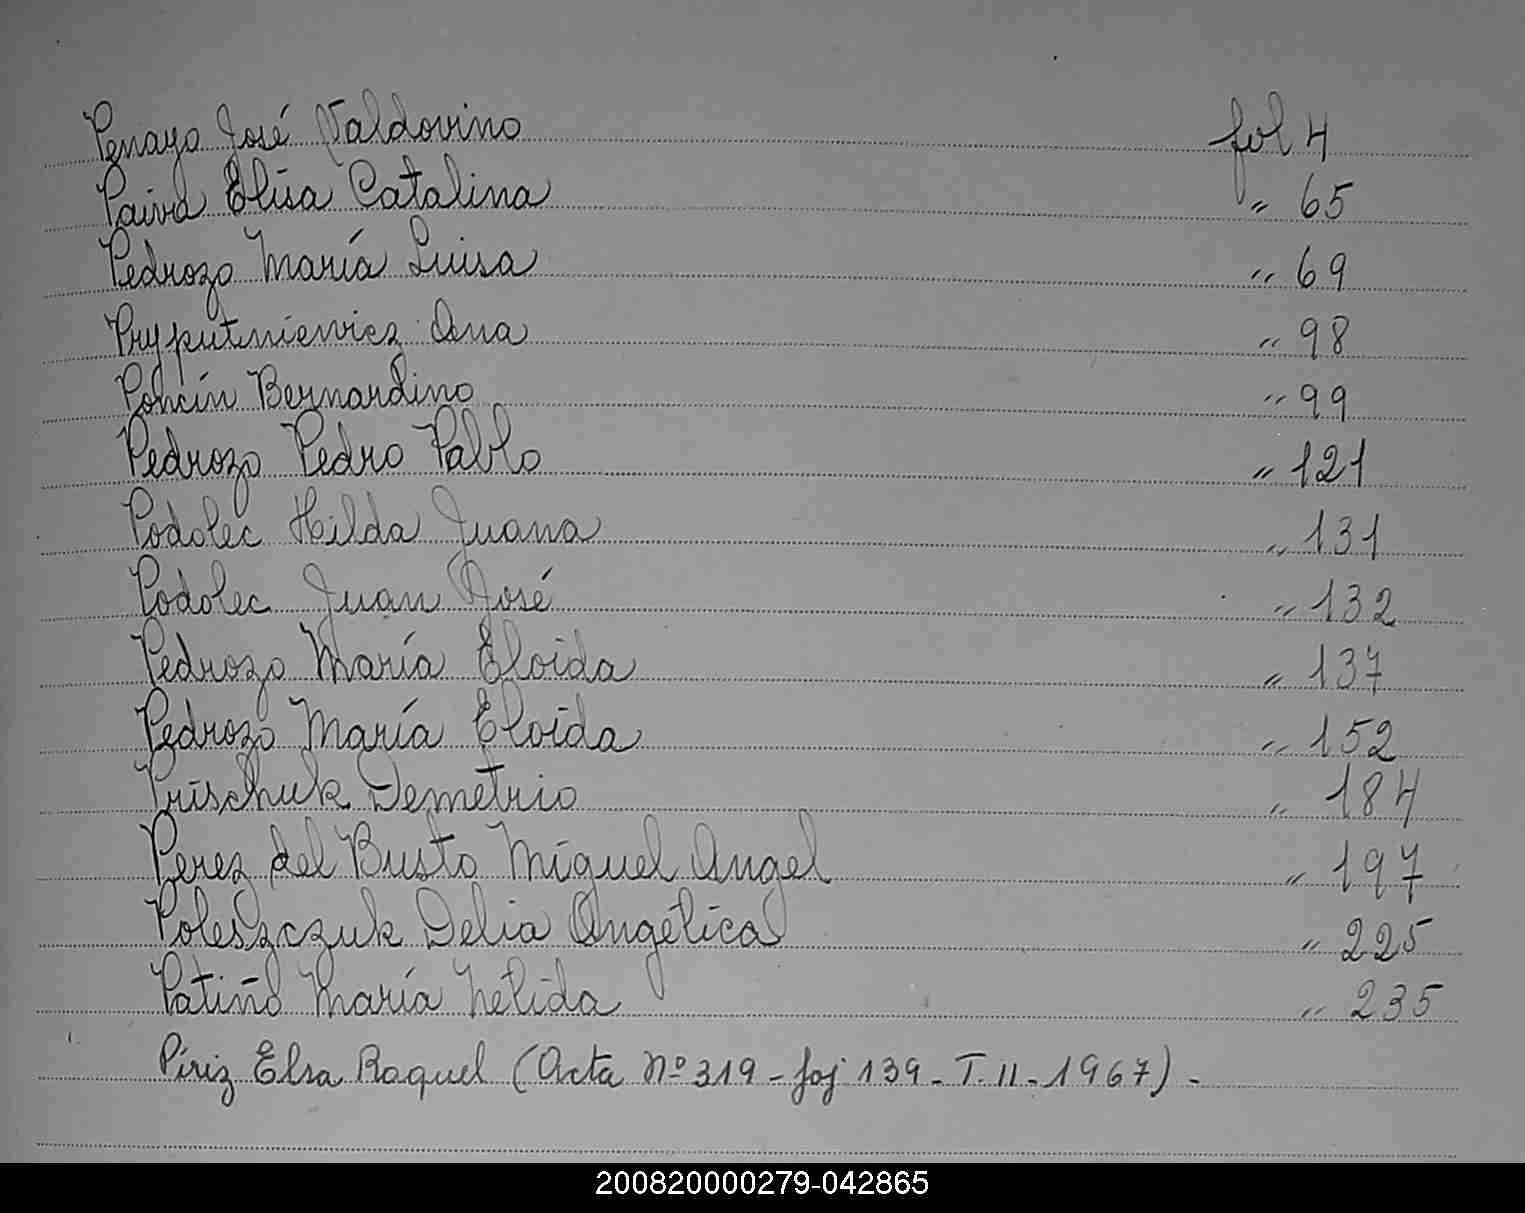 Penayo José Valdovino fol 4
Paiva Elisa Catalina " 65
Pedrozo María Luisa " 69
Pryputniewicz Ana " 98
Poncín Bernardino " 99
Pedrozo Pedro Pablo " 121
Podolec Hilda Juana " 131
Podolec Juan José " 132
Pedrozo María Eloida " 137
Pedrozo María Eloida " 152
Prischuk Demetrio " 184
Perez del Busto Miguel Angel " 197
Poleszczuk Delia Angélica " 225
Patiño María Nelida " 235
Píriz Elsa Raquel (Acta Nº 319 - foj 139 - T. II - 1967) -
200820000279-042865